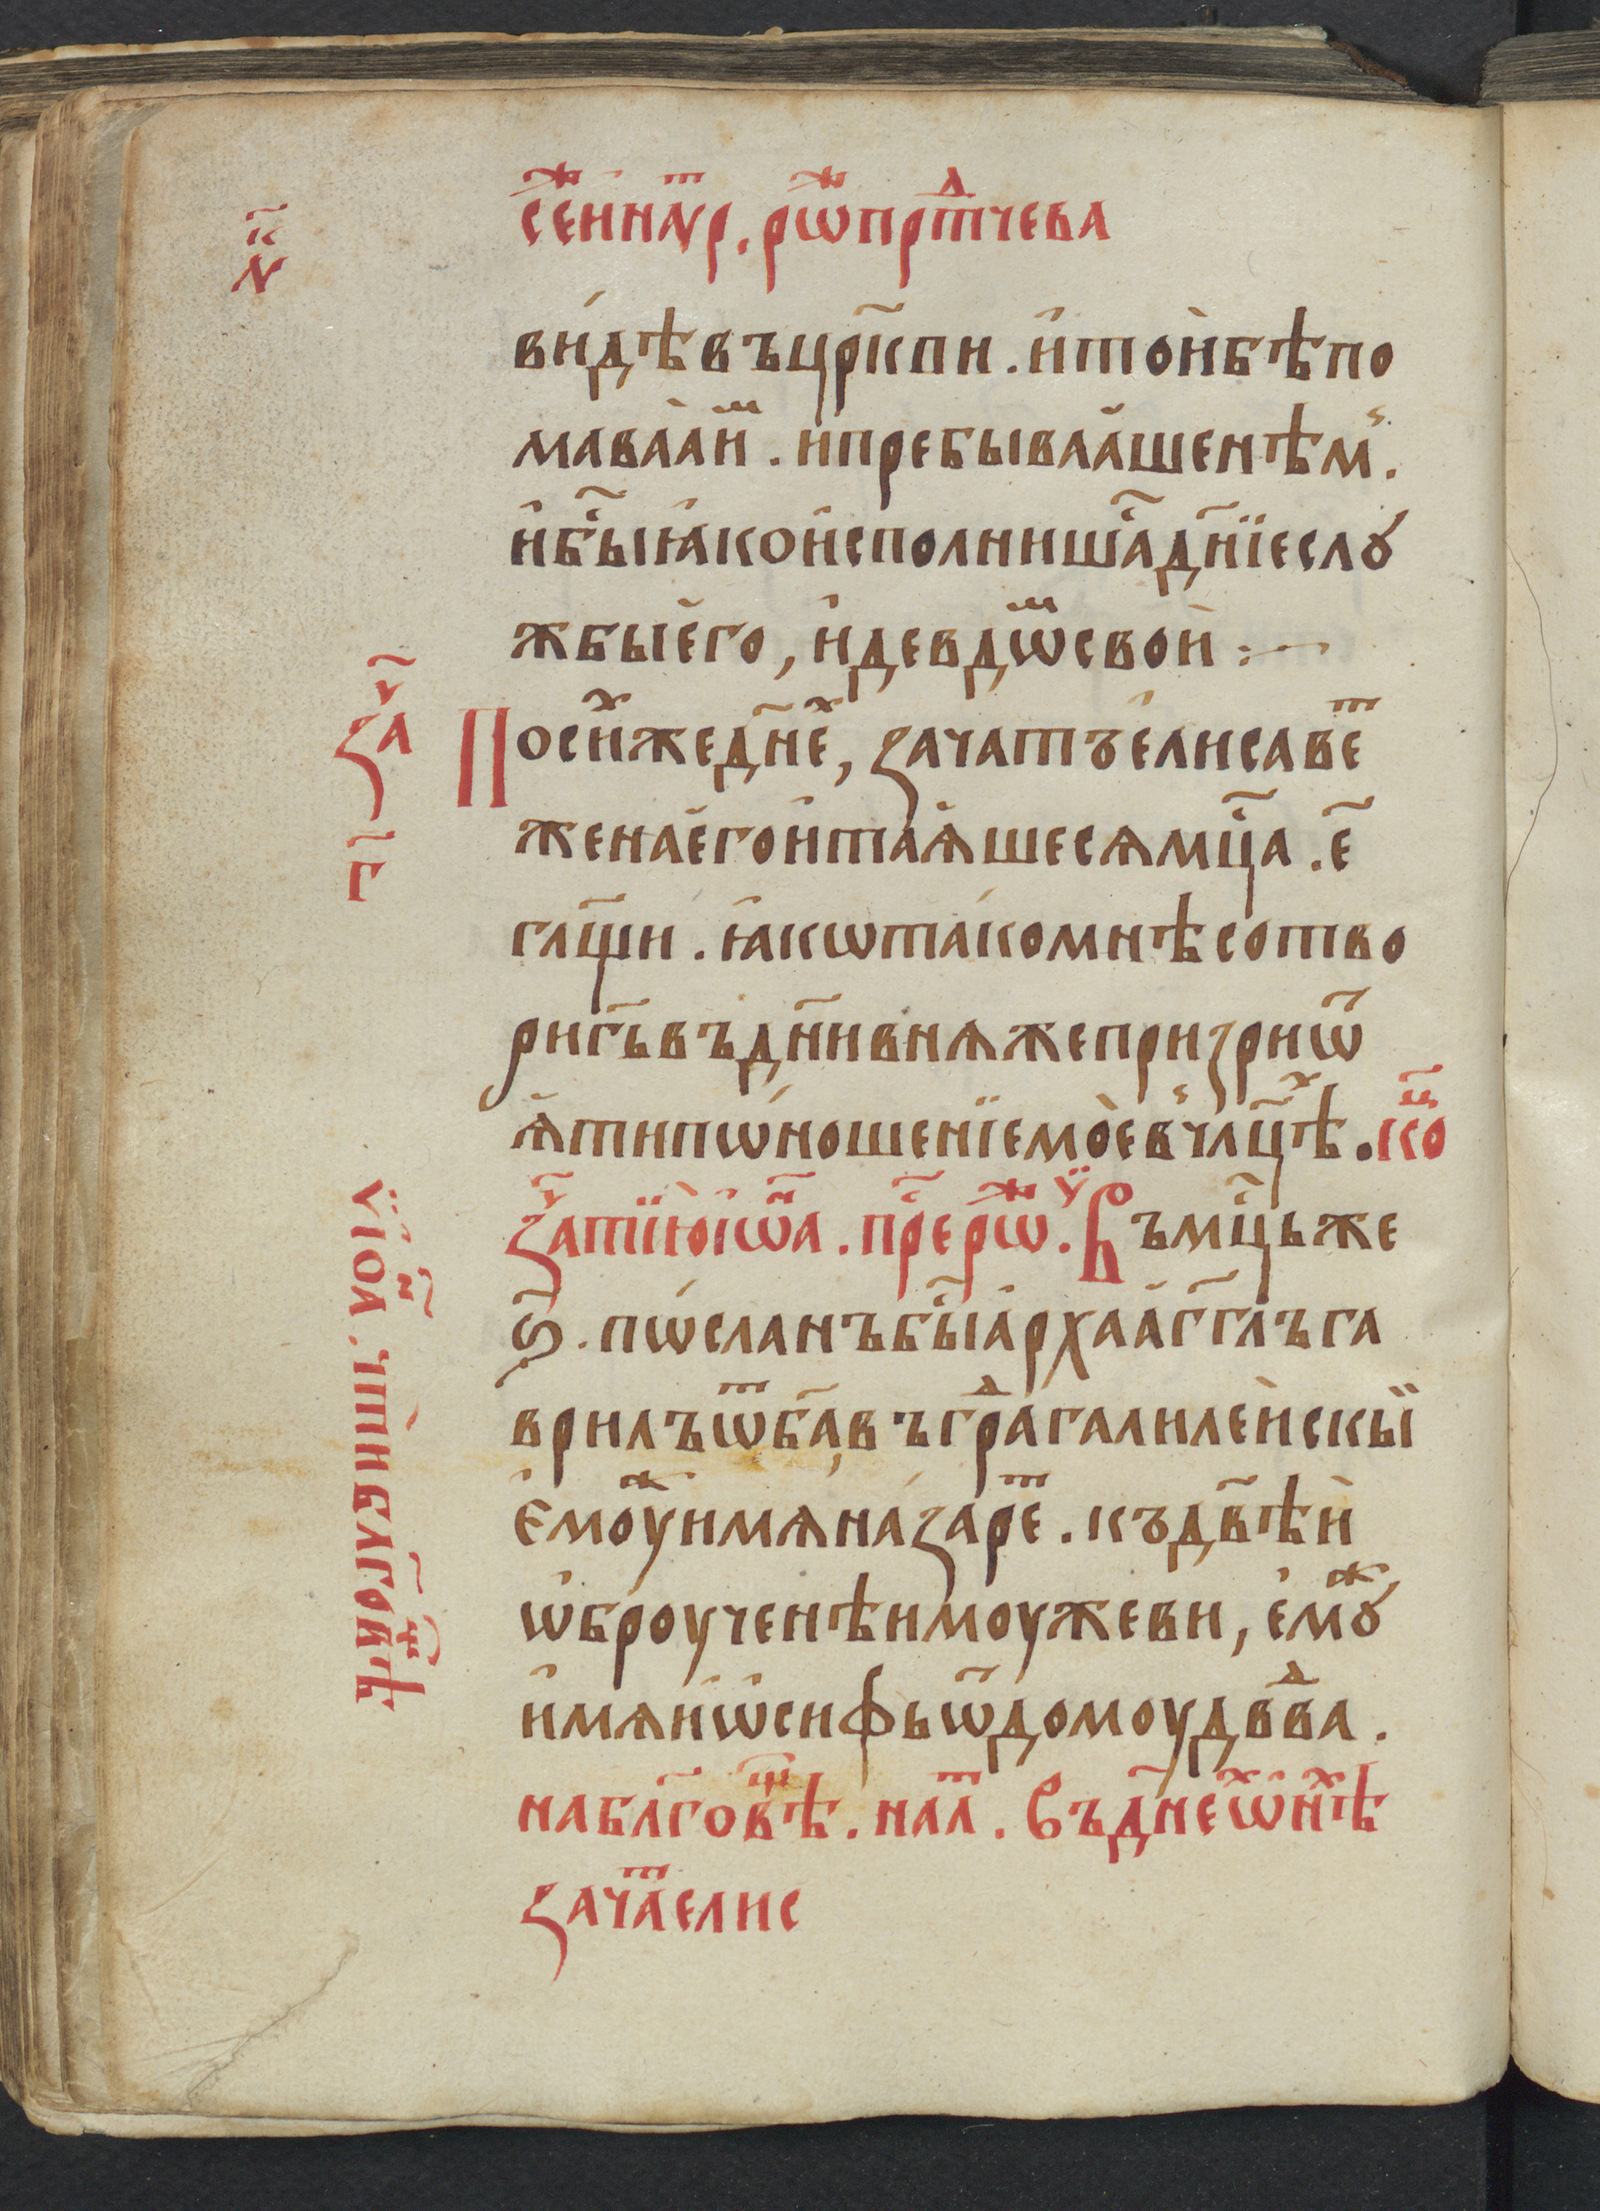 се́нар. рѡпрⷣтчева
ви́дѣвъцр҃кпи. и҆то́йбѣпо
маваа҆иⷲ. и҆пребываа҆шенѣмъ.
и҆бы҃ꙗ҆кои҆сполнишѧ҃дн҃їеслꙋ
жбыє҆го, и҆девдѡⷨсвой :~
Посиⷯжедн҃еⷯ, зачатъє҆лисавеⷮ
женає҆гои҆таꙗ҆шесѧмц҃а. е҃
глщ҃и. ꙗ҆кѡта́комнѣсотво
ригь҃въдн҃ивнѧжепризриѿ
ꙗ҆типѡ́ношенїемо̀евъчл҃цⷯѣ. коⷰ
заⷱ҇тїю і҆ѡⷩ҇а. прⷣерѡⷤ. Въмц҃ьже
ѕ҃. пѡ́сланъбы҃а҆рхаа҆гг҃лъга
врилъѿбг҃авъграⷣгалилейскы́й
є҆моуⷤимѧна́зареⷮ. къдв҃ѣй
ѡ҆броученѣймоужеви, є҆мꙋⷤ
и҆мѧи҆ѡ҆сифьѿдомоудв҃ⷣва.
набл҃говⷳѣ. налⷮ. Въдн҃еⷯѡ҆нⷯѣ
зачаⷮелис
заⷱ҇
г҃